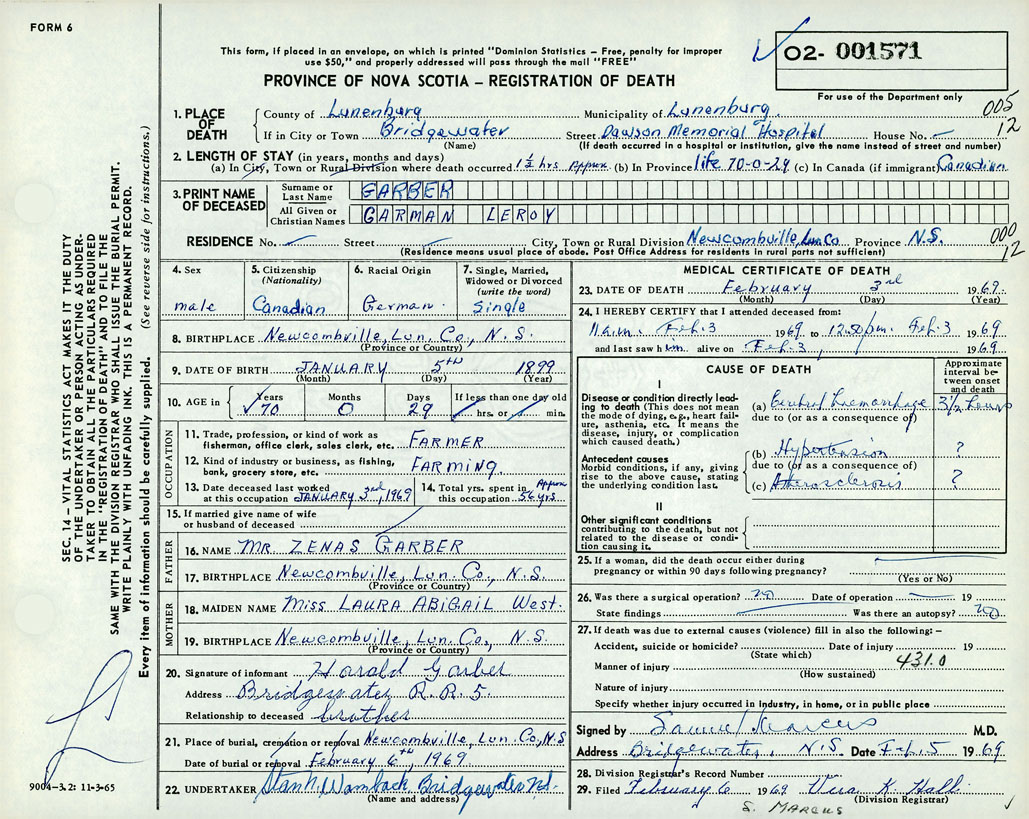 FORM 6
This form, if placed in an envelope, on which is printed "Dominion Statistics – Free, penalty for improper
use $50," and properly addressed will pass through the mail "FREE"
O2- 001571
For use of the Department only
PROVINCE OF NOVA SCOTIA – REGISTRATION OF DEATH
005
12
1. PLACE OF DEATH
County of Lunenburg Municipality of Lunenburg
If in City or Town Bridgewater Street Dawson Memorial Hospital House No.
(Name) (If death occurred in a hospital or institution, give the name instead of street and number)
2. LENGTH OF STAY (in years, months and days)
(a) In City, Town or Rural Division where death occurred 1½ hrs Approx. (b) In Province life 70-0-29 (c) In Canada (if immigrant) Canadian
3. PRINT NAME OF DECEASED
Surname or Last Name GARBER
All Given or Christian Names GARMAN LEROY
RESIDENCE No. Street City, Town or Rural Division Newcombville, Lun. Co Province N.S.
(Residence means usual place of abode. Post Office Address for residents in rural parts not sufficient)
000
12
4. Sex
male
5. Citizenship
(Nationality)
Canadian
6. Racial Origin
German
7. Single, Married,
Widowed or Divorced
(write the word)
Single
8. BIRTHPLACE Newcombville, Lun. Co., N.S.
(Province or Country)
9. DATE OF BIRTH JANUARY 5th 1899
(Month) (Day) (Year)
10. AGE in
Years 70
Months 0
Days 29
If less than one day old
hrs. or min.
OCCUPATION
11. Trade, profession, or kind of work as
fisherman, office clerk, sales clerk, etc. FARMER
12. Kind of industry or business, as fishing,
bank, grocery store, etc. FARMING
13. Date deceased last worked
at this occupation JANUARY 3rd, 1969
14. Total yrs. spent in Approx
this occupation 56 yrs.
15. If married give name of wife
or husband of deceased
FATHER
16. NAME MR. ZENAS GARBER
17. BIRTHPLACE Newcombville, Lun. Co., N.S.
(Province or Country)
MOTHER
18. MAIDEN NAME Miss LAURA ABIGAIL West.
19. BIRTHPLACE Newcombville, Lun. Co., N.S.
(Province or Country)
20. Signature of informant Harold Garber
Address Bridgewater R.R.5.
Relationship to deceased brother
21. Place of burial, cremation or removal Newcombville, Lun. Co., N.S
Date of burial or removal February 6th, 1969
22. UNDERTAKER Stan N. Wamback Bridgewater N.S.
(Name and address)
MEDICAL CERTIFICATE OF DEATH
23. DATE OF DEATH February 3rd 1969
(Month) (Day) (Year)
24. I HEREBY CERTIFY that I attended deceased from:
a.m. Feb. 3 1969 to 12.50 p.m. Feb. 3 1969
and last saw him alive on Feb. 3, 1969
CAUSE OF DEATH
Approximate
interval be-
tween onset
and death
I
Disease or condition directly lead-
ing to death (This does not mean
the mode of dying, e.g., heart fail-
ure, asthenia, etc. It means the
disease, injury, or complication
which caused death.)
(a) Cerebral Haemorrhage 3½ hours
due to (or as a consequence of)
Antecedent causes
Morbid conditions, if any, giving
rise to the above cause, stating
the underlying condition last.
(b) Hypertension ?
due to (or as a consequence of)
(c) Atherosclerosis ?
II
Other significant conditions
contributing to the death, but not
related to the disease or condi-
tion causing it.
25. If a woman, did the death occur either during
pregnancy or within 90 days following pregnancy?
(Yes or No)
26. Was there a surgical operation? no Date of operation 19
State findings Was there an autopsy? no
27. If death was due to external causes (violence) fill in also the following: –
Accident, suicide or homicide? Date of injury 19
(State which)
431.0
Manner of injury
(How sustained)
Nature of injury
Specify whether injury occurred in industry, in home, or in public place
Signed by Samuel Marcus M.D.
Address Bridgewater, N.S. Date Feb. 5 1969
28. Division Registrar's Record Number
29. Filed February 6 1969 Vera K. Hall
(Division Registrar)
S. MARCUS
SEC. 14 – VITAL STATISTICS ACT MAKES IT THE DUTY
OF THE UNDERTAKER OR PERSON ACTING AS UNDER-
TAKER TO OBTAIN ALL THE PARTICULARS REQUIRED
IN THE "REGISTRATION OF DEATH" AND TO FILE THE
SAME WITH THE DIVISION REGISTRAR WHO SHALL ISSUE THE BURIAL PERMIT.
WRITE PLAINLY WITH UNFADING INK. THIS IS A PERMANENT RECORD.
Every item of information should be carefully supplied. (See reverse side for instructions.)
9004–3.2: 11-3-65